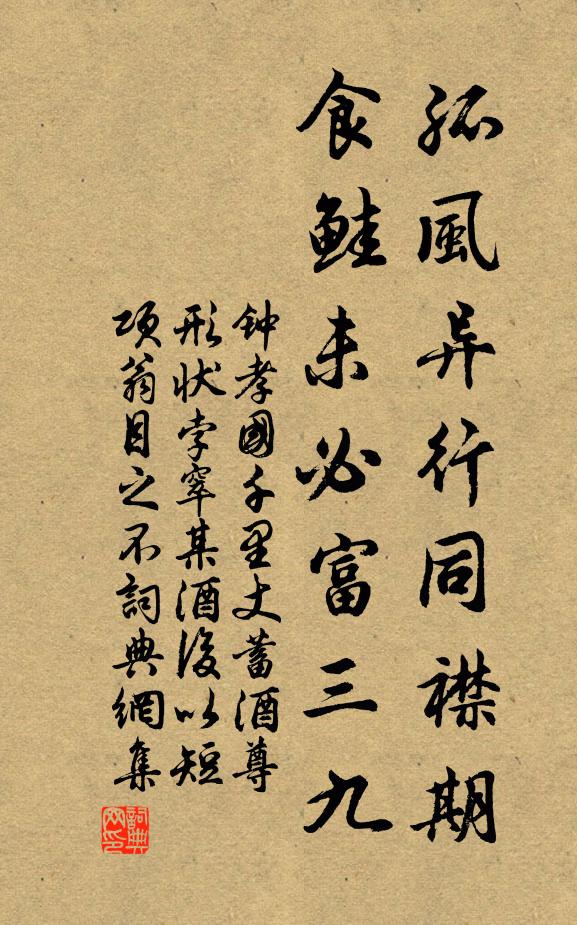 孤風异行同襟期
食鮭未必富三九
钟孝國千里丈蓄酒尊
形状孛窣某酒後以短
项翁目之不詞典網集
詞典網印